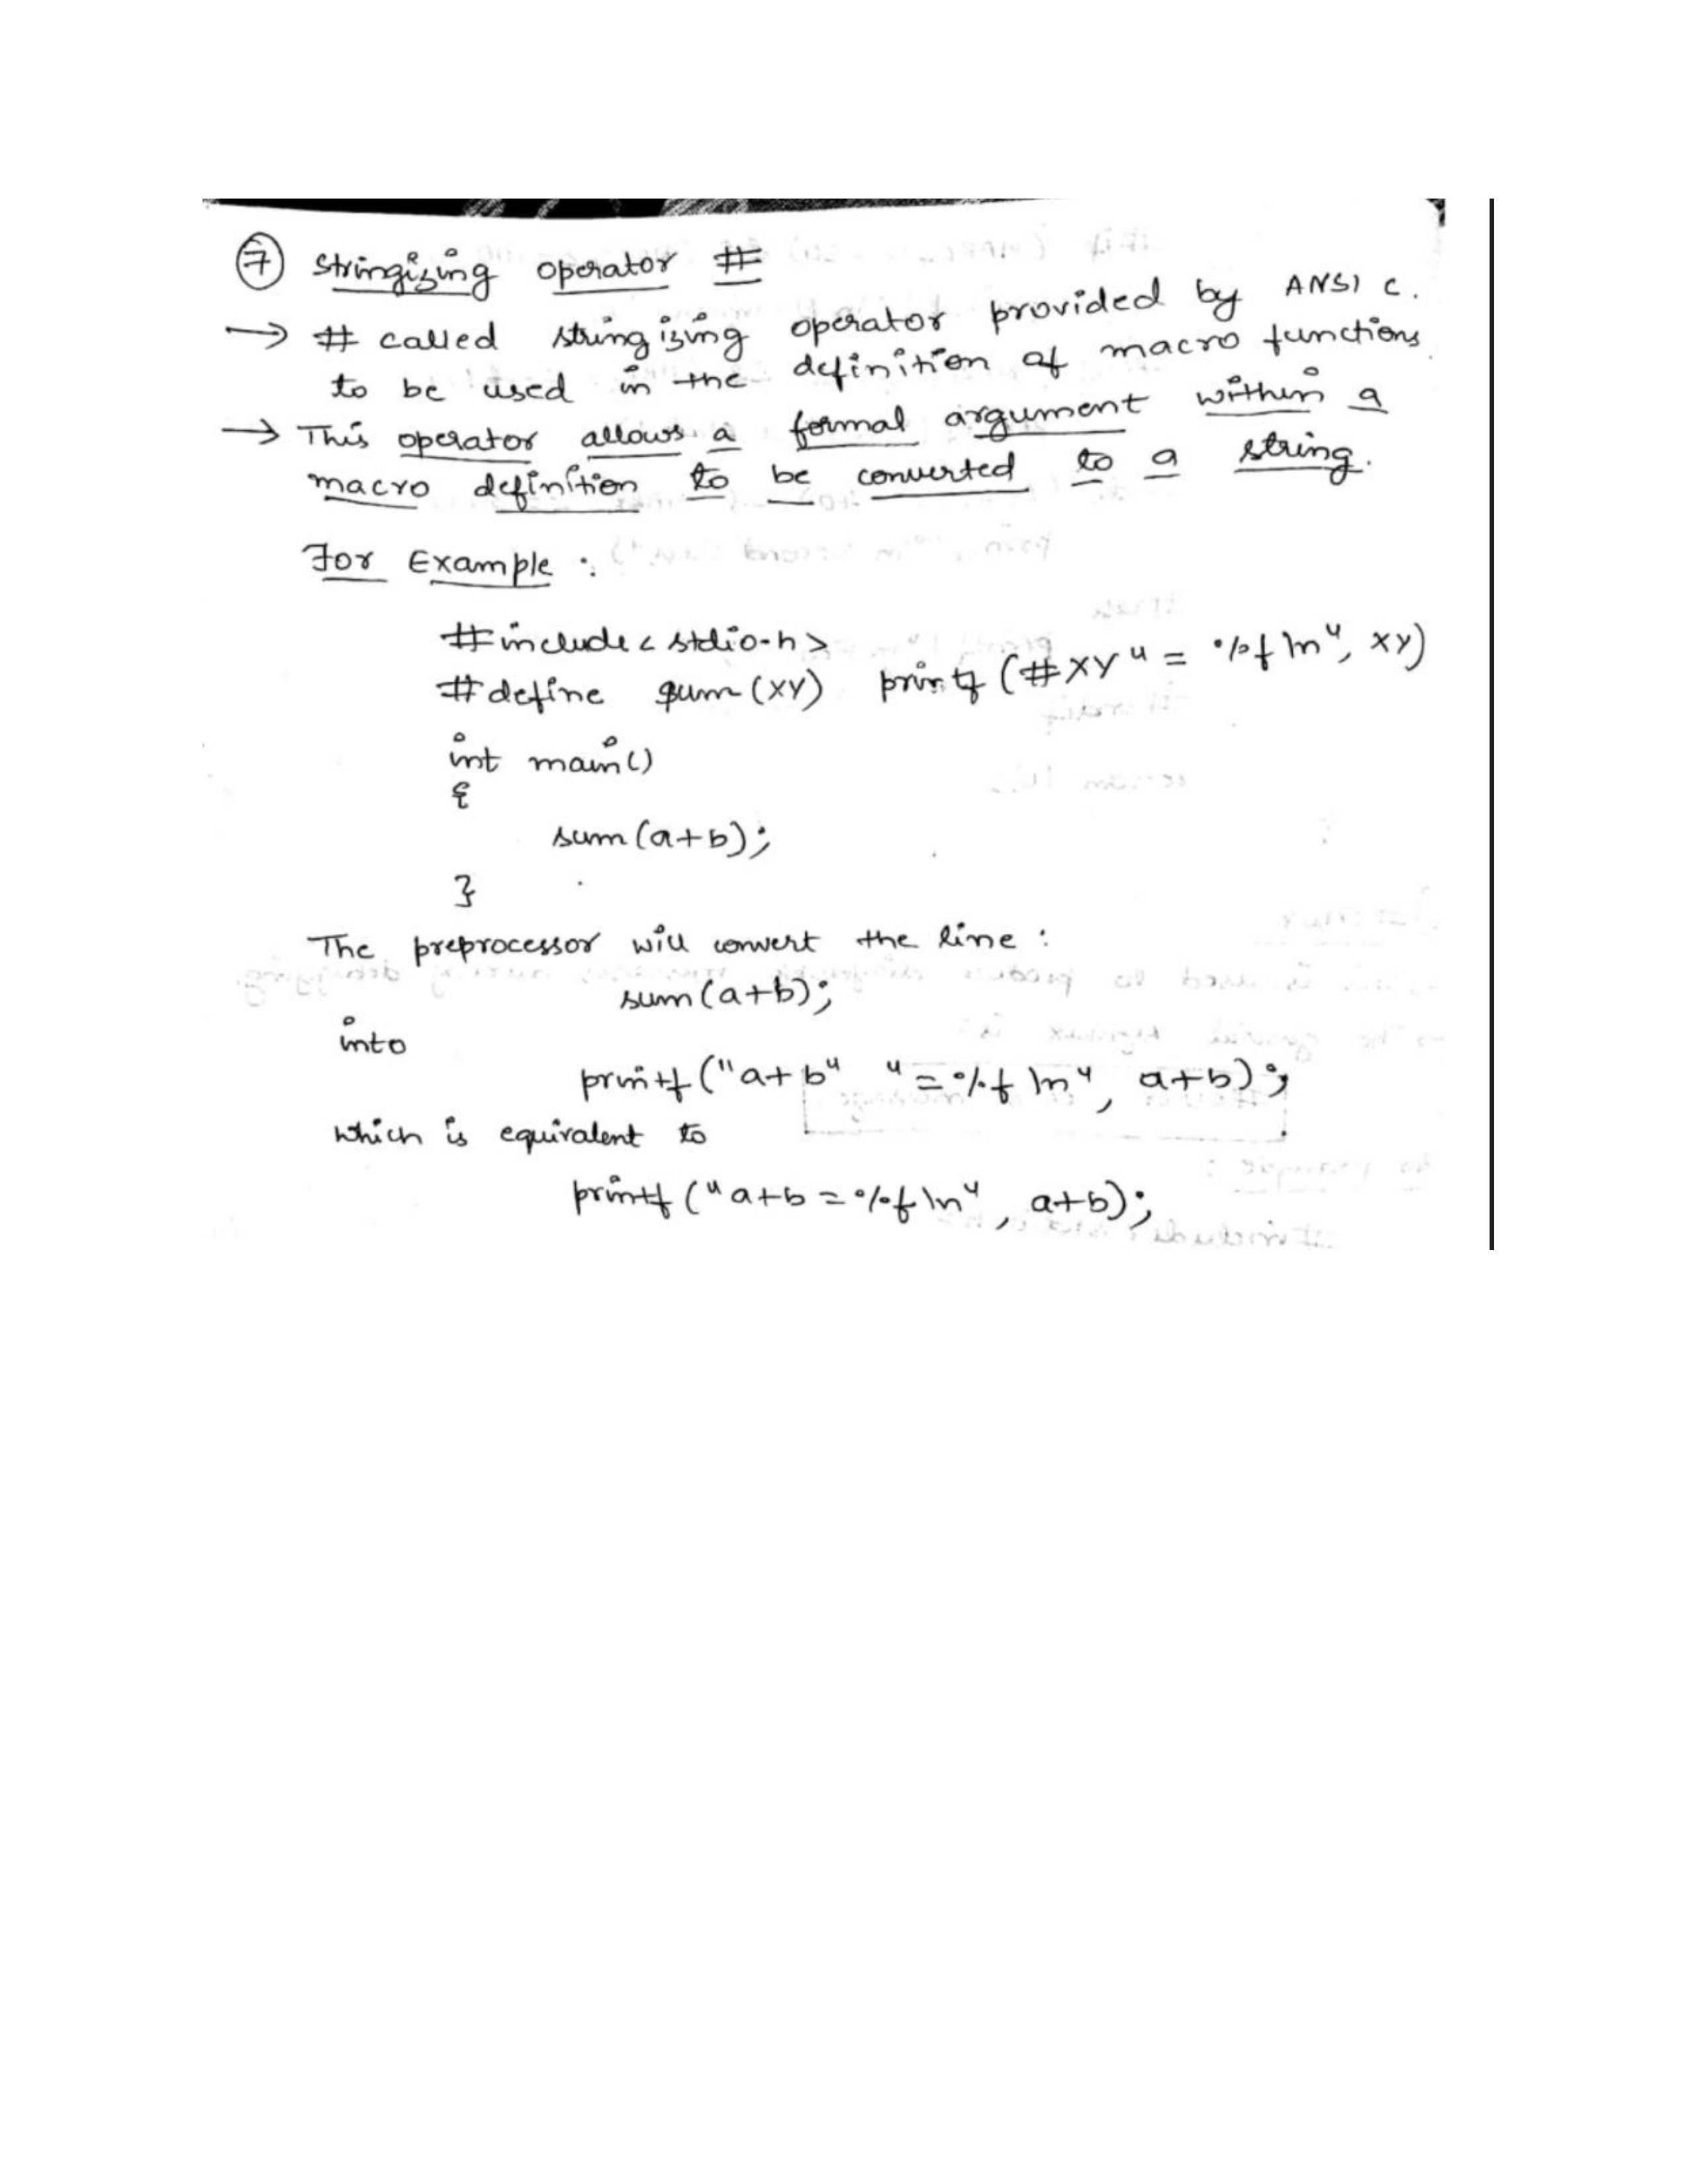 ⑦ Stringizing operator #
→ # called stringizing operator provided by ANSI C.
to be used in the definition of macro functions.
→ This operator allows a formal argument within a
macro definition to be converted to a string.
For Example :
#include < stdio-h >
#define sum (XY) printf (#XY " = %f \n", XY)
int main()
{
sum (a+b);
}
The preprocessor will convert the line :
sum (a+b);
into
printf ("a+b" "=%f \n", a+b);
which is equivalent to
printf ("a+b = %f \n", a+b);